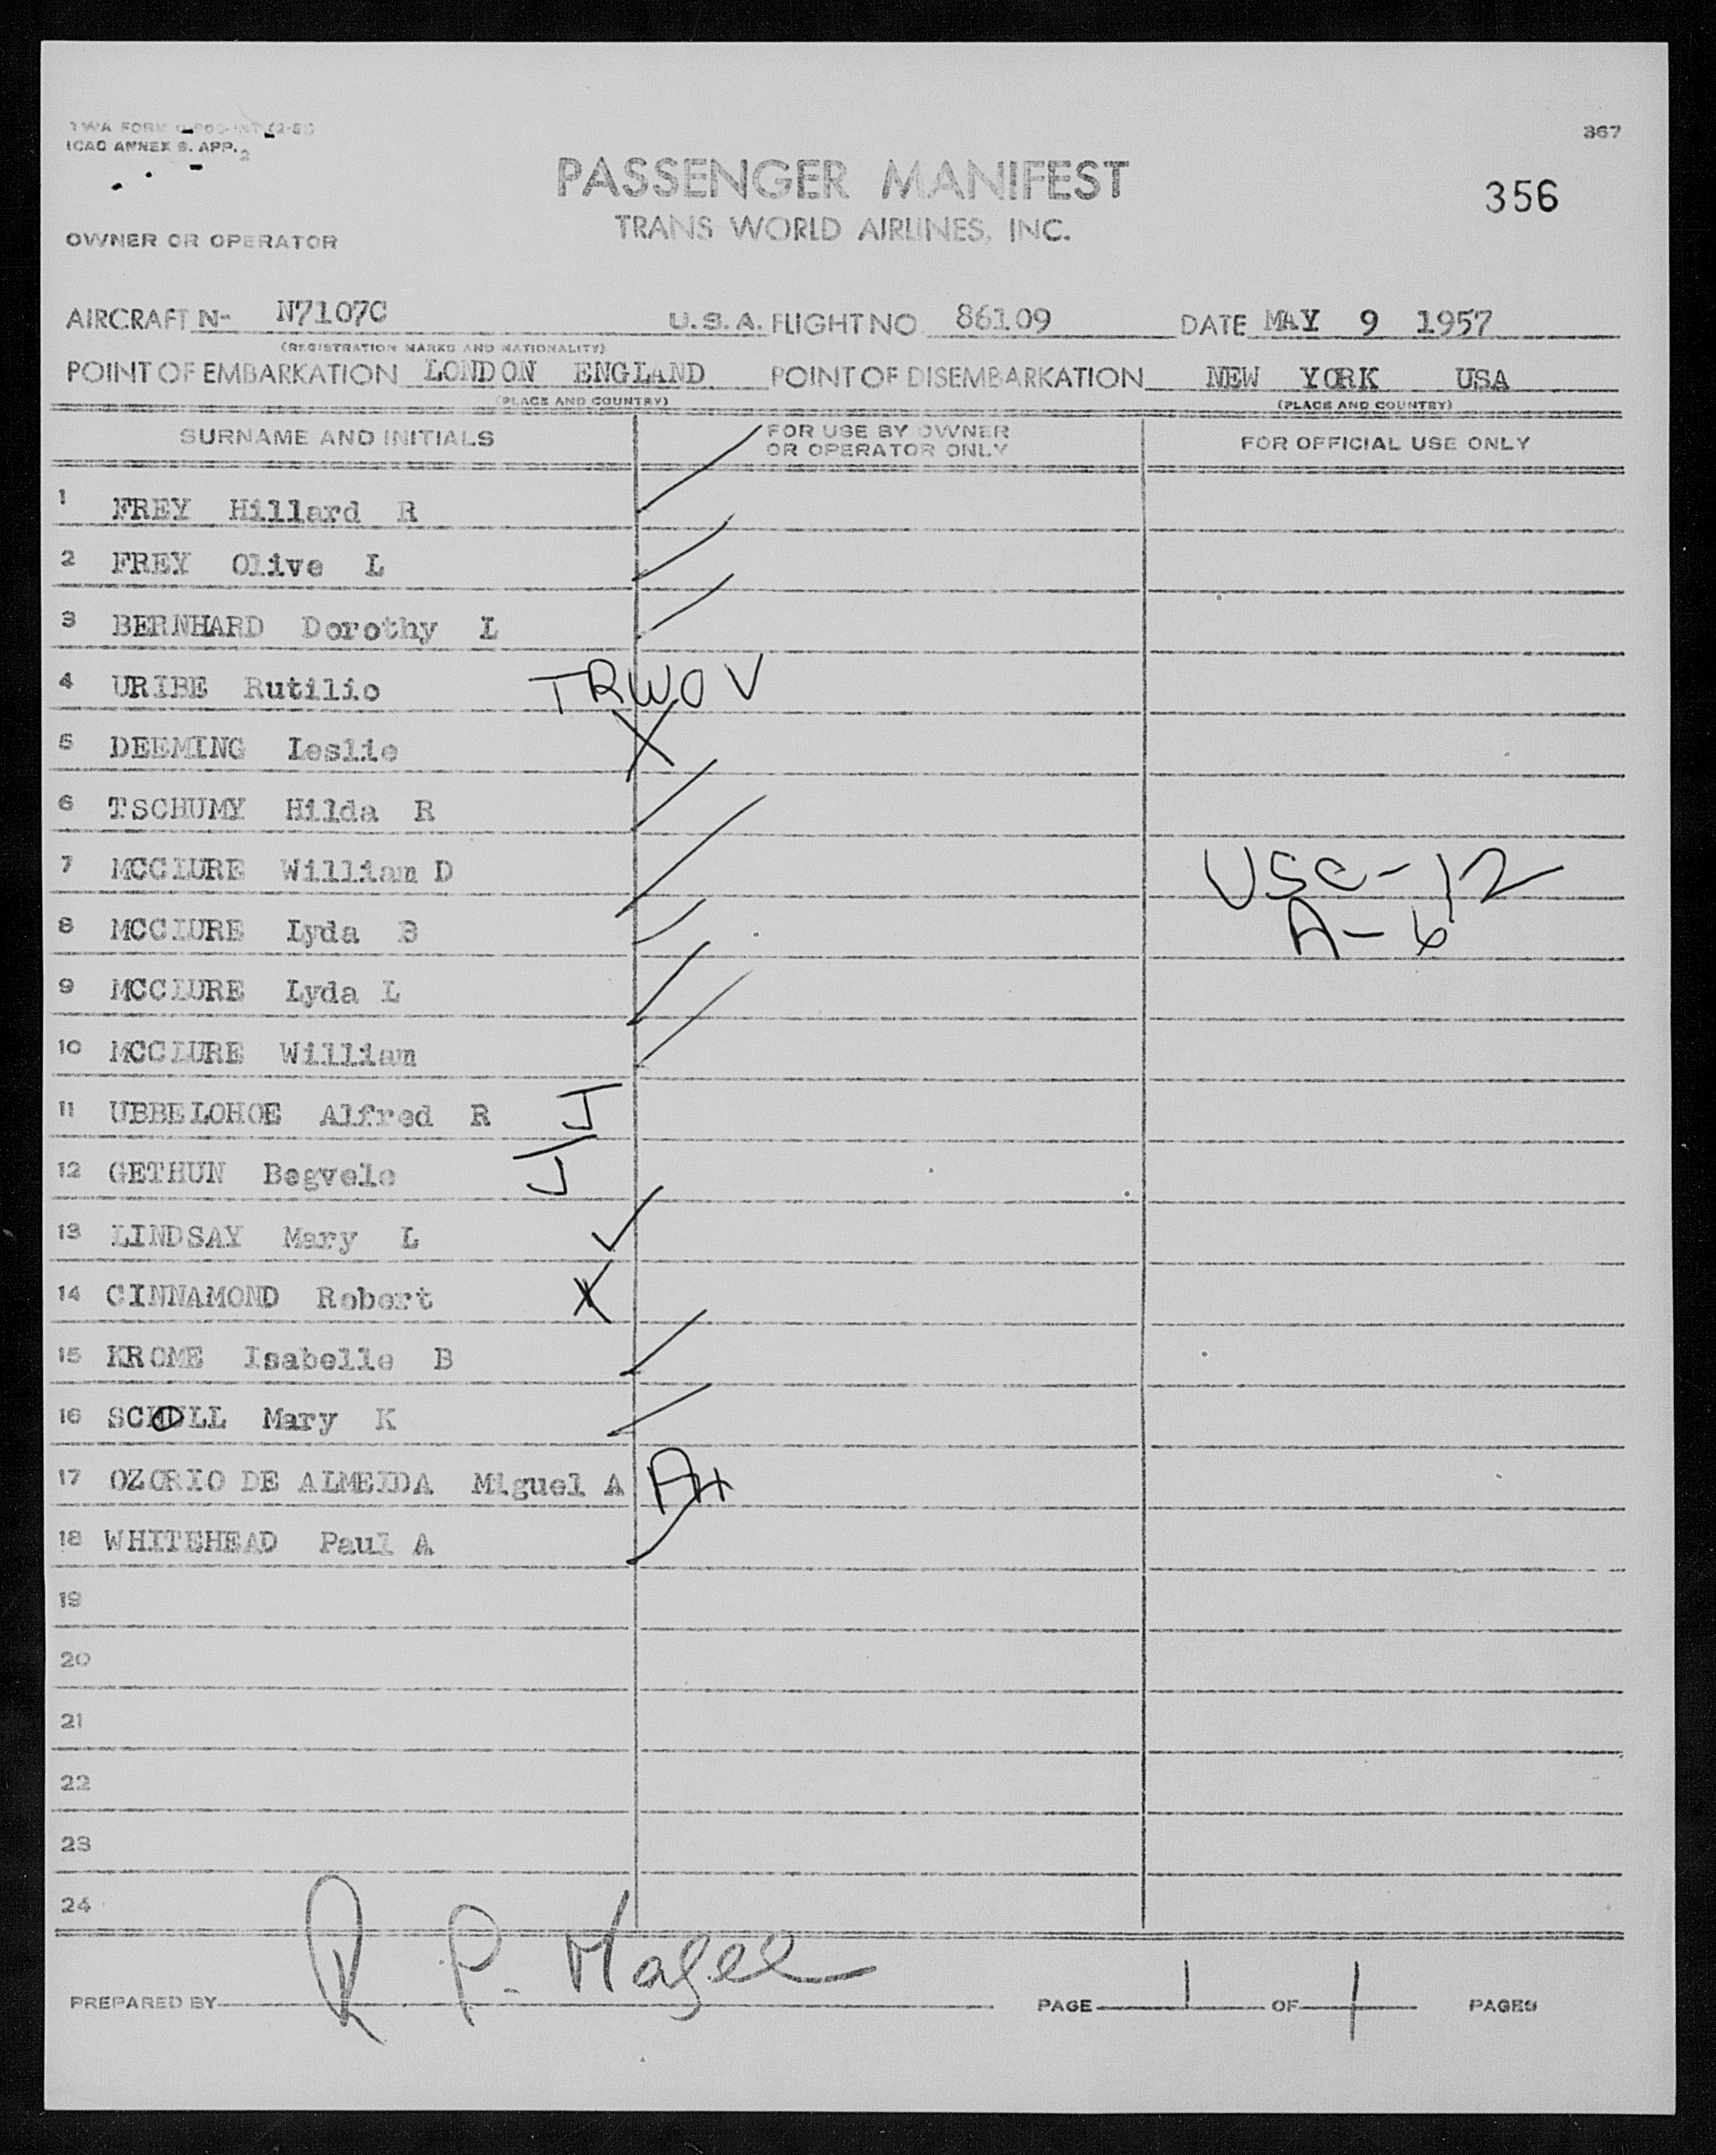 ICAO ANNEX 9. APP. 2
367
PASSENGER MANIFEST
356
TRANS WORLD AIRLINES, INC.
OWNER OR OPERATOR
AIRCRAFT N- N7107C U.S.A. FLIGHT NO 86109 DATE MAY 9 1957
(REGISTRATION MARKS AND NATIONALITY)
POINT OF EMBARKATION LONDON ENGLAND POINT OF DISEMBARKATION NEW YORK USA
(PLACE AND COUNTRY) (PLACE AND COUNTRY)
SURNAME AND INITIALS FOR USE BY OWNER OR OPERATOR ONLY FOR OFFICIAL USE ONLY
1 FREY Hillard R
2 FREY Olive L
3 BERNHARD Dorothy L
4 URIBE Rutilio TRWOV
5 DEEMING Leslie X
6 TSCHUMY Hilda R
7 MCCLURE William D USC-12
8 MCCLURE Lyda B A-6
9 MCCLURE Lyda L
10 MCCLURE William
11 UBBELOHOE Alfred R J
12 GETHUN Begvele J
13 LINDSAY Mary L ✓
14 CINNAMOND Robert X
15 KROME Isabelle B
16 SCHOLL Mary K
17 OZORIO DE ALMEIDA Miguel A
18 WHITEHEAD Paul A
19
20
21
22
23
24
PREPARED BY R P. Magee PAGE 1 OF 1 PAGES